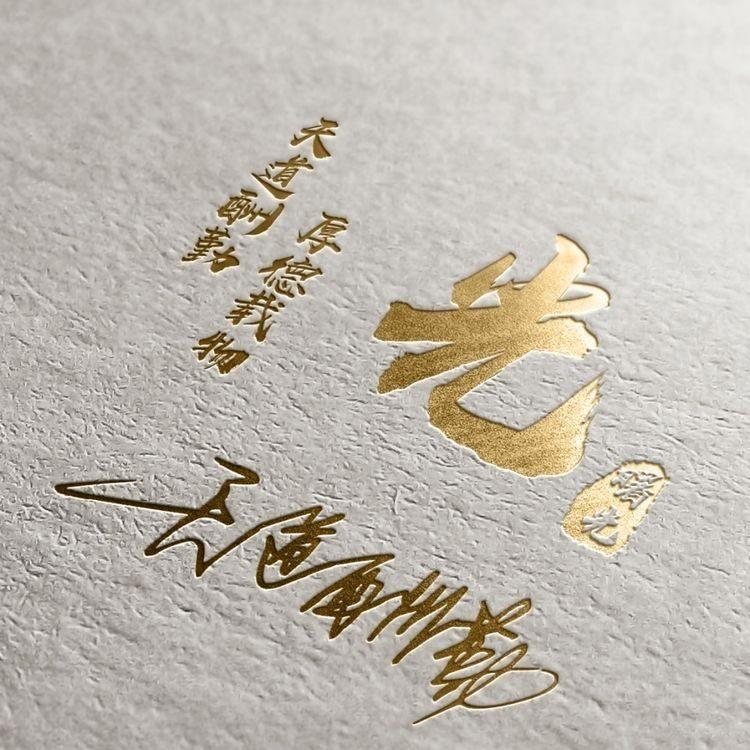 天道酬勤
厚德载物
光
曙光
天道酬勤